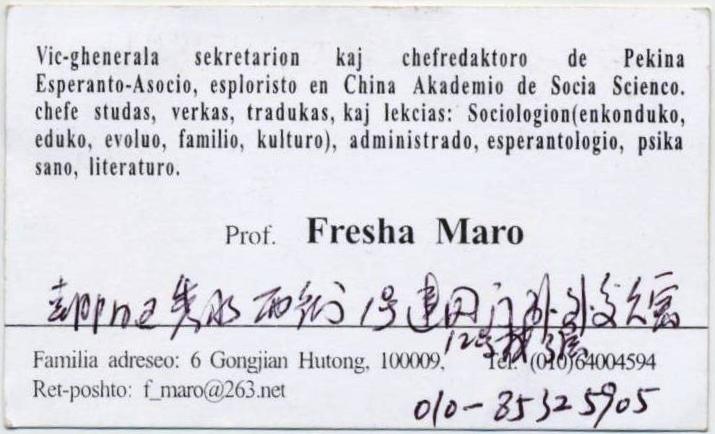 Vic-ghenerala sekretarion kaj chefredaktoro de Pekina
Esperanto-Asocio, esploristo en China Akademio de Socia Scienco.
chefe studas, verkas, tradukas, kaj lekcias: Sociologion(enkonduko,
eduko, evoluo, familio, kulturo), administrado, esperantologio, psika
sano, literaturo.
Prof. Fresha Maro
朝阳区秀水西街1号建国门外外交公寓
12号楼
Familia adreseo: 6 Gongjian Hutong, 100009, Tel: (010)64004594
Ret-poshto: f_maro@263.net
010-85325905